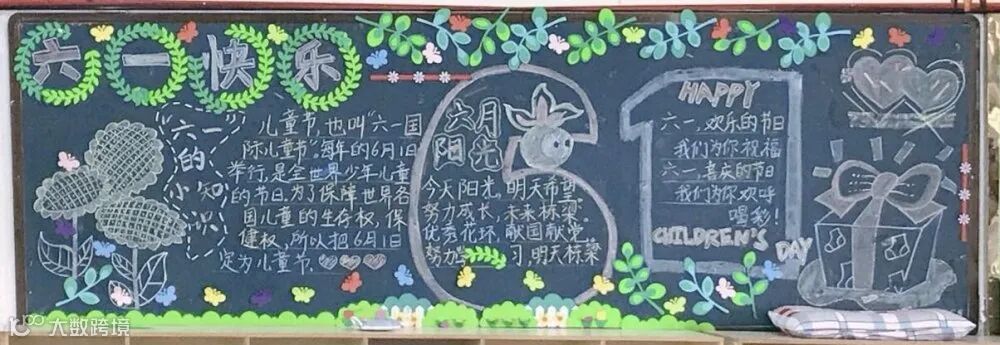 六一快乐
六一的小知识
儿童节,也叫“六一国
际儿童节”。每年的6月1日
举行,是全世界少年儿童
的节日。为了保障世界各
国儿童的生存权、保
健权,所以把6月1日
定为儿童节、
六月
阳光
61
今天阳光,明天希望。
努力成长,未来栋梁。
优秀花环,献国献党。
努力学习,明天栋梁
HAPPY
六一,欢乐的节日
我们为你祝福
六一,喜庆的节日
我们为你欢呼
喝彩!
CHILDREN'S
DAY
大数跨境